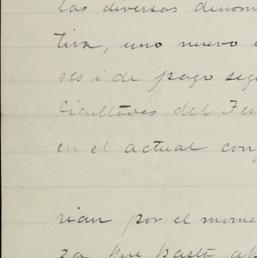 las diversas denom
tiva, uno nuevo
ses i de pago seg
ficultades del Fe
en el actual con
rian por el mome
za que hasta ah